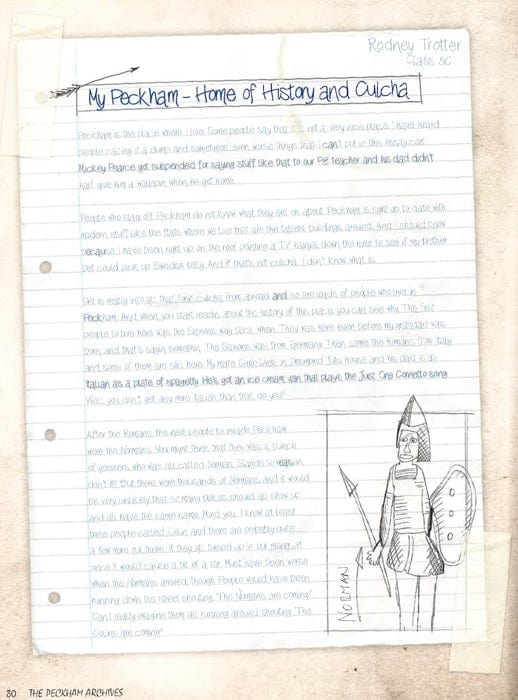 Rodney Trotter
Class 5C
My Peckham – Home of History and Culcha
Peckham is the place where I live. Some people say that it's not a very nice place. I have heard
people calling it a dump and sometimes even worse things that I can't put in this essay coz
Mickey Pearce got suspended for sayin stuff like that to our PE teacher and his dad didn't
half give him a wallopin when he got home.
People who slag off Peckham do not know what they are on about. Peckham is right up to date with
modern stuff like the flats where we live that are the tallest buildings around. And I should know
because I have been right up on the roof pointing a TV aerial down the river to see if my brother
Del could pick up Swedish telly. And if that's not culcha, I don't know what is.
Del is really into all that culcha from abroad and so are loads of people who live in
Peckham. And when you start readin about the history of the place you can see why. The first
people to live here was the Saxons way back when. They was here even before my grandad was
born, and that's sayin somethin. The Saxons was from Germany. Then came the Romans from Italy
and some of them are still here. My mate Gino lives in Desmond Tutu house and his dad is as
Italian as a plate of spagetty. He's got an ice cream van that plays the Just One Cornetto song.
Well, you don't get any more Italian than that, do you?
After the Romans, the next people to invade Peckham
were the Normans. You might think that they was a bunch
of geezers who was all called Norman. Stands to reason,
don't it? But there were thousands of Normans and it would
be very unlikely that so many blokes should all show up
and all have the same name. Mind you, I know at least
three people called Colin and there are probably quite
a few more out there. If they all turned up in our manor at
once it would cause a bit of a stir. Must have been worse
when the Normans arrived, though. People would have been
running down the street shouting, 'The Normans are coming!'
Can't really imagine them all running around shouting 'The
Colins are coming!'
NORMAN
80 THE PECKHAM ARCHIVES